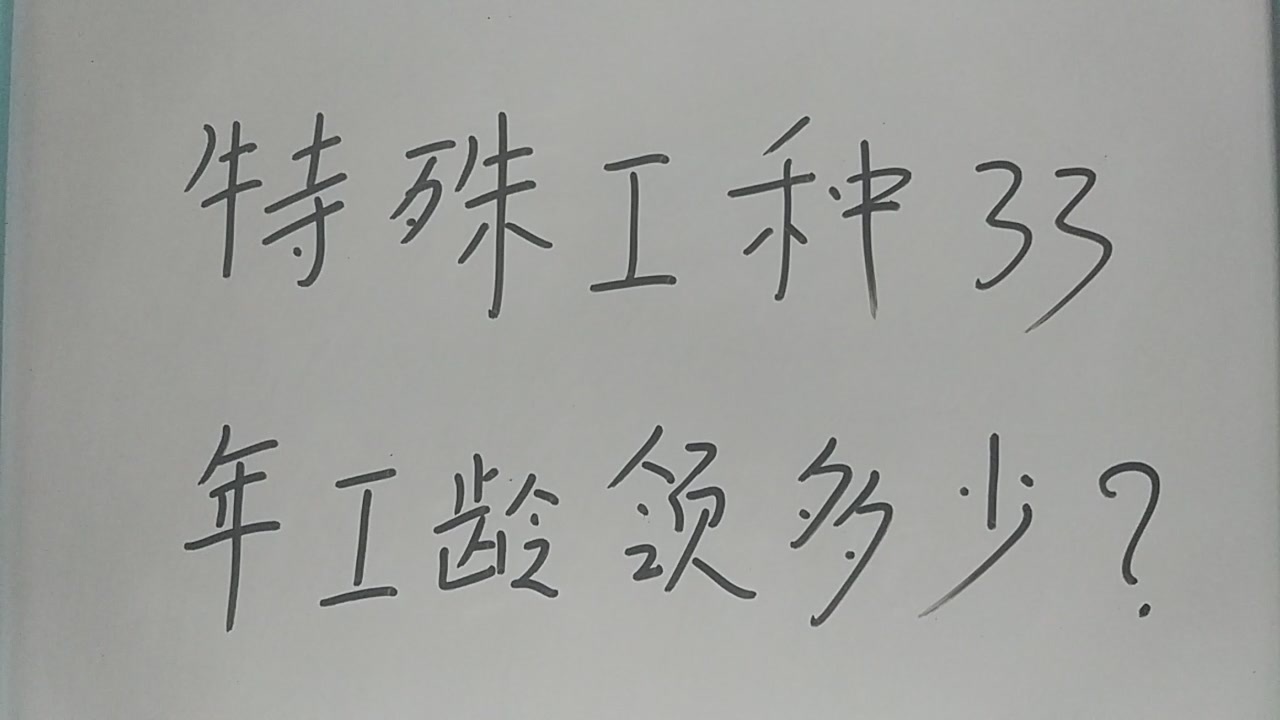 特殊工种33
年工龄领多少?